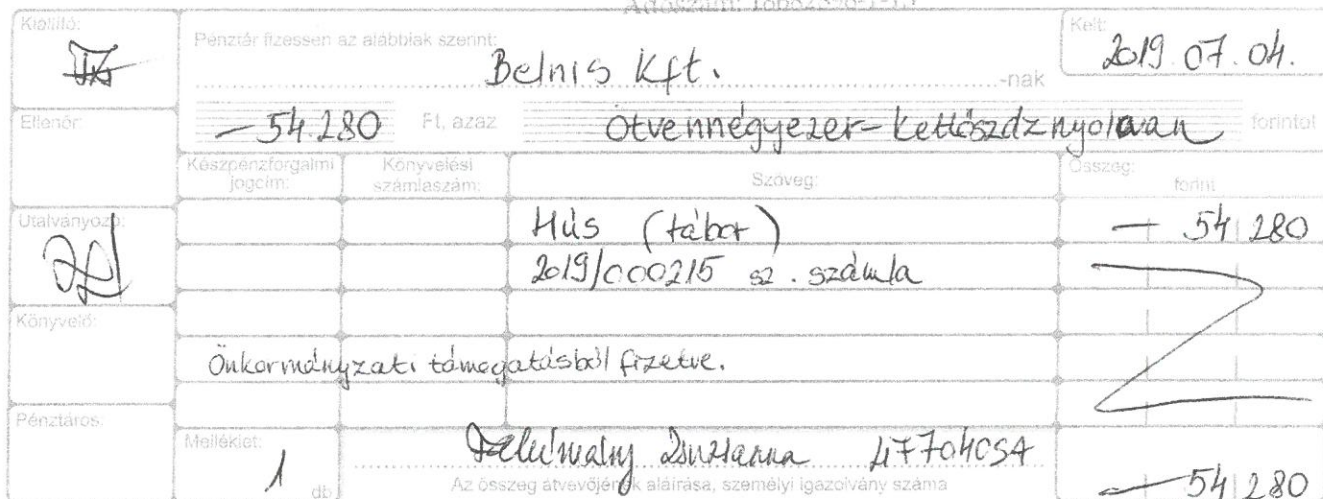 Kiállító:
Pénztár fizessen az alábbiak szerint:
Kelt:
2019.07.04.
Belnis Kft. -nak
Ellenőr:
— 54.280 Ft, azaz Ötvennégyezer-kettőszáznyolcvan forintot
Készpénzforgalmi jogcím:
Könyvelési számlaszám:
Szöveg:
Összeg:
forint
Utalványozó:
Hús (tábor) — 54 280
2019/000215 sz. számla
Könyvelő:
Önkormányzati támogatásból fizetve.
Pénztáros:
Melléklet:
1 db
Zsuzsanna 477040SA
Az összeg átvevőjének aláírása, személyi igazolvány száma
— 54 280